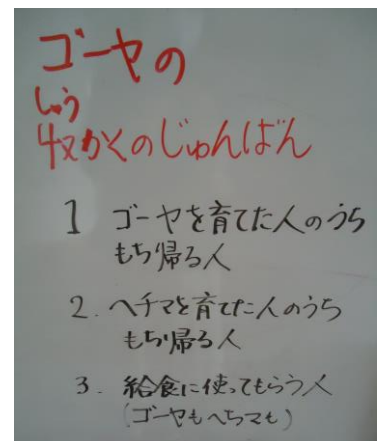 ゴーヤの
しゅう
収かくのじゅんばん
1 ゴーヤを育てた人のうち
もち帰る人
2. ヘチマを育てた人のうち
もち帰る人
3. 給食に使ってもらう人
(ゴーヤもへちマも)